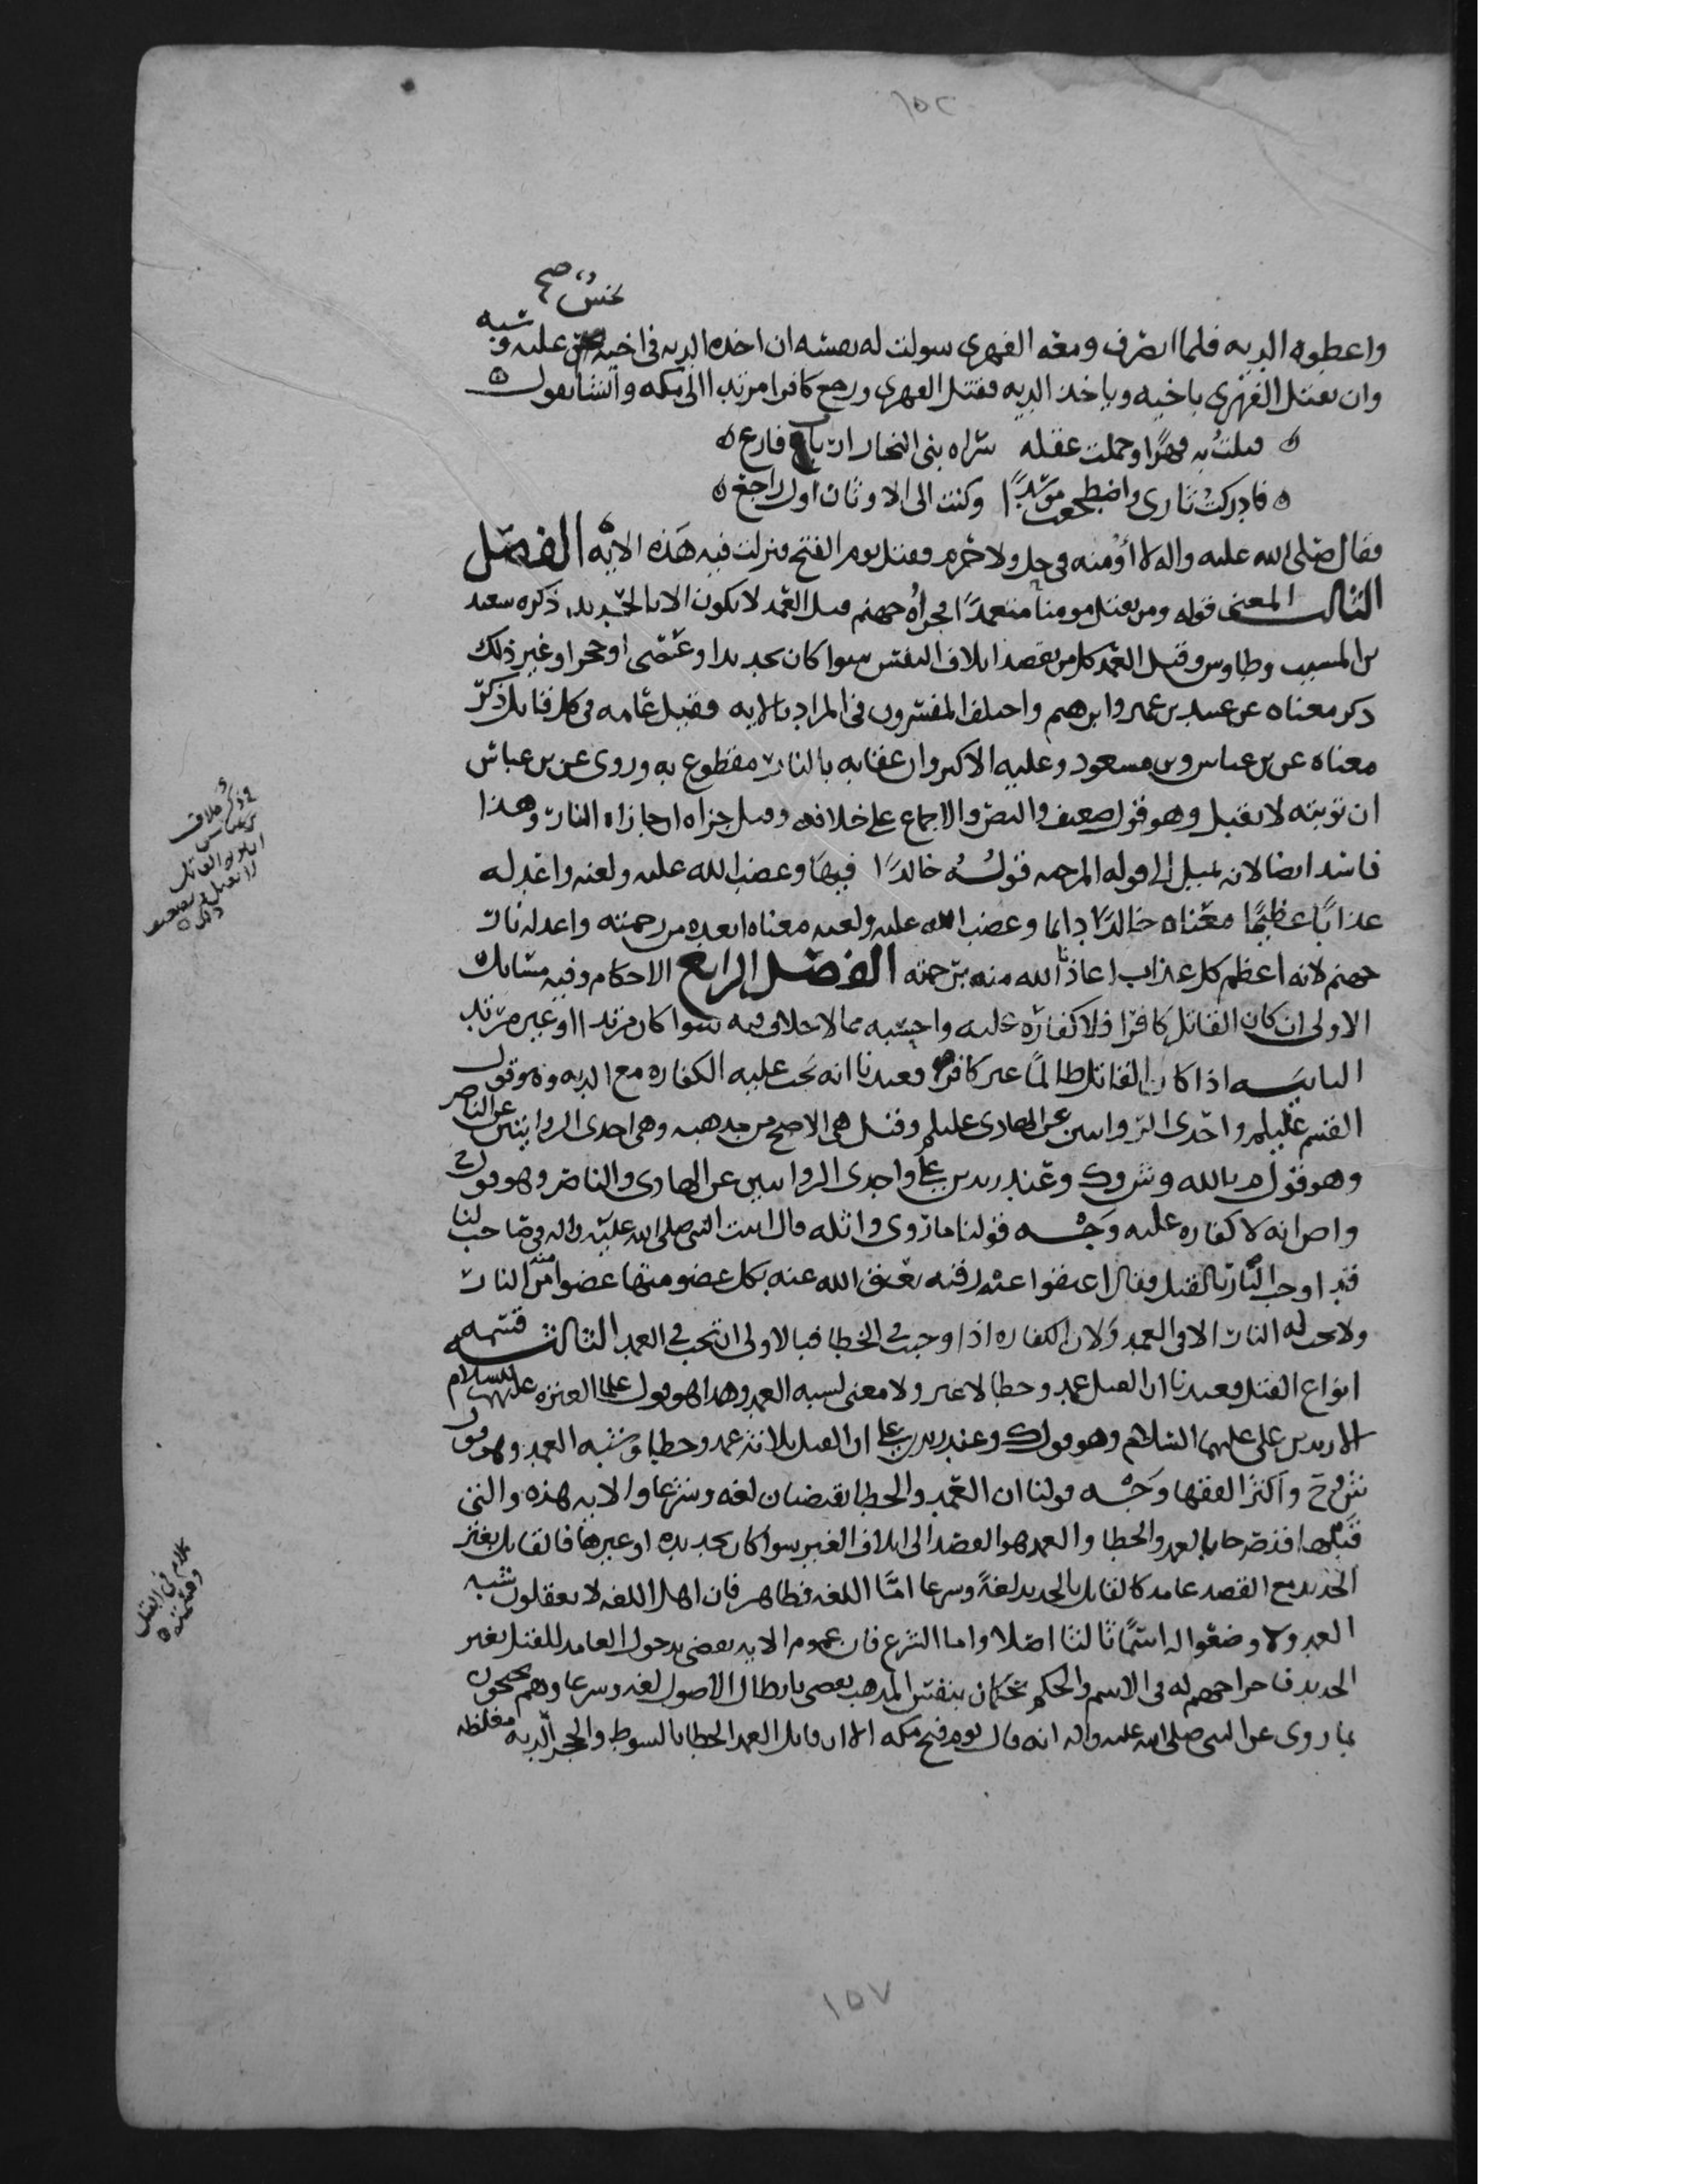 ١٥٢
نخس صح
واعطوه الديه فلما انصرف ومعه الفهري سولت له نفسه ان اخذه الديه في اخيه عليه وشبه
وان يقتل الفهري باخيه وياخذ الديه فقتل الفهري ورجع كافرا مرتدا الى مكه وانشا يقول
قتلت به فهرًا وحملت عقله سراه بني النجار ارباب فارع
فادركت ثاري واضطجعت موسدًا وكنت الى الاوثان اول راجع
فقال صلى الله عليه واله لا أؤمنه في حل ولا حرم فقتل يوم الفتح ونزلت فيه هذه الايه الفصل
الثالث المعنى قوله ومن يقتل مومنا متعمدًا فجزاؤه جهنم قيل العمد لا يكون الا بالحديد ذكره سعيد
بن المسيب وطاوس وقيل العمد كل من يقصد اتلاف النفس سوا كان بحديدا وعصى او حجر او غير ذلك
ذكر معناه عن عبيد بن عمير وابرهيم واختلف المفسرون في المراد بالايه فقيل عامه في كل قاتل ذكر
معناه عن بن عباس وبن مسعود وعليه الاكثر وان عقابه بالنار مقطوع به وروى عن بن عباس
ان توبته لا تقبل وهو قول ضعيف والنص والاجماع على خلافه وقيل جزاه ان جازاه النار وهذا
فاسد ايضا لانه يميل الى قوله المرجيه قولُه خالدًا فيها وغضب الله عليه ولعنه واعد له
عذابًا عظيمًا معناه خالدًا دايما وغضب الله عليه ولعنه معناه ابعده من رحمته واعد له نار
جهنم لانه اعظم كل عذاب اعاذنا الله منه برحمته الفصل الرابع الاحكام وفيه مسايل
الاولى ان كان القاتل كافرا فلا كفاره عليه واجبه بالاخلاف فيه سوا كان مرتدا او غير مرتد
الثانيه اذا كان القاتل ظالمًا غير كافر فعندنا انه تجب عليه الكفاره مع الديه وهو قول
القسم عليلم واحدى الروايتين عن الهادي عليلم وقيل هي الاصح من مذهبه وهي احدى الروايتين عن الناصر
وهو قول م بالله وش وك وعند زيد بن علي واحدى الروايتين عن الهادي والناصر وهو قول ح
واص انه لا كفاره عليه وجه قولنا ما روى واثله قال اتيت النبي صلى الله عليه واله في صاحب لنا
قد اوجب النار بالقتل فقال اعتقوا عنه رقبه يعتق الله عنه بكل عضو منها عضوا منه من النار
ولا تجب له النار الا في العمد ولان الكفاره اذا وجبت في الخطا فبالاولى ان تجب في العمد الثالثه قسمه
انواع القتل فعندنا ان القتل عمد وخطا لا غير ولا معنى لشبه العمد وهذا هو قول علما العتره عليهم السلام
الا زيد بن علي عليهما السلام وهو قول ك وعند زيد بن علي ان القتل ثلاثه عمد وخطا وشبه العمد وهو قول
ش وح واكثر الفقها وجه قولنا ان العمد والخطا نقيضان لغه وشرعا والايه هذه والتي
قبلها قد صرحا بالعمد والخطا والعمد هو القصد الى اتلاف الغير سوا كان بحديده او غيرها فالقاتل بغير
الحديد مع القصد عامد كالقاتل بالحديد لغةً وشرعا امّا اللغه فظاهر فان اهل اللغه لا يعقلون شبه
العمد ولا وضعوا له اسمًا ثالثا اصلا واما الشرع فان عموم الايه يقضي بدخول العامد للقتل بغير
الحديد فاخراجهم له في الاسم والحكم تحكمان بنفس المذهب يقضي بابطال الاصول لغه وشرعا وهم يحتجون
بما روى عن النبي صلى الله عليه واله انه قال يوم فتح مكه الا ان قاتل العمد الخطا بالسوط والحجر الديه مغلظه
وذكر خلاف
بن عباس
ان توبه القاتل
لا تقبل وتضعيف
ذلك
كلام في القتل
وقسمته
١٥٧